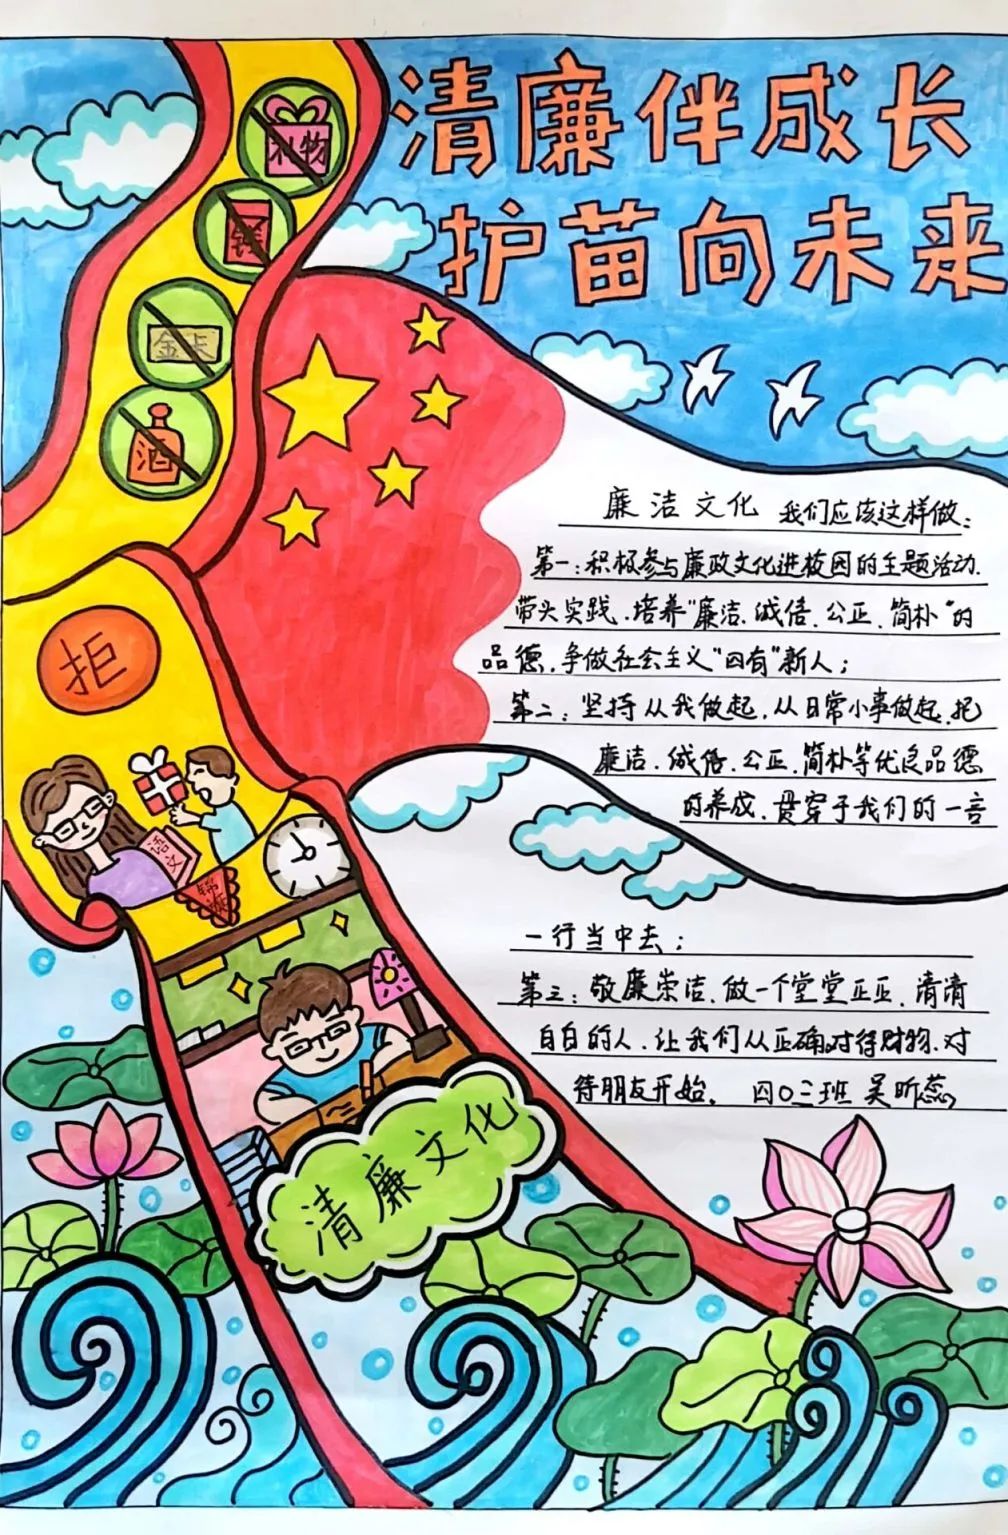 清廉伴成长
护苗向未来
礼物
钱
金卡
酒
拒
语文
锦旗
清廉文化
廉洁文化 我们应该这样做:
第一:积极参与廉政文化进校园的主题活动.
带头实践.培养"廉洁.诚信.公正.简朴"的
品德.争做社会主义"四有"新人;
第二:坚持从我做起.从日常小事做起.把
廉洁.诚信.公正.简朴等优良品德
的养成.贯穿于我们的一言
一行当中去;
第三:敬廉崇洁.做一个堂堂正正.清清
白白的人.让我们从正确对待财物.对
待朋友开始. 四〇三班 吴昕蕊